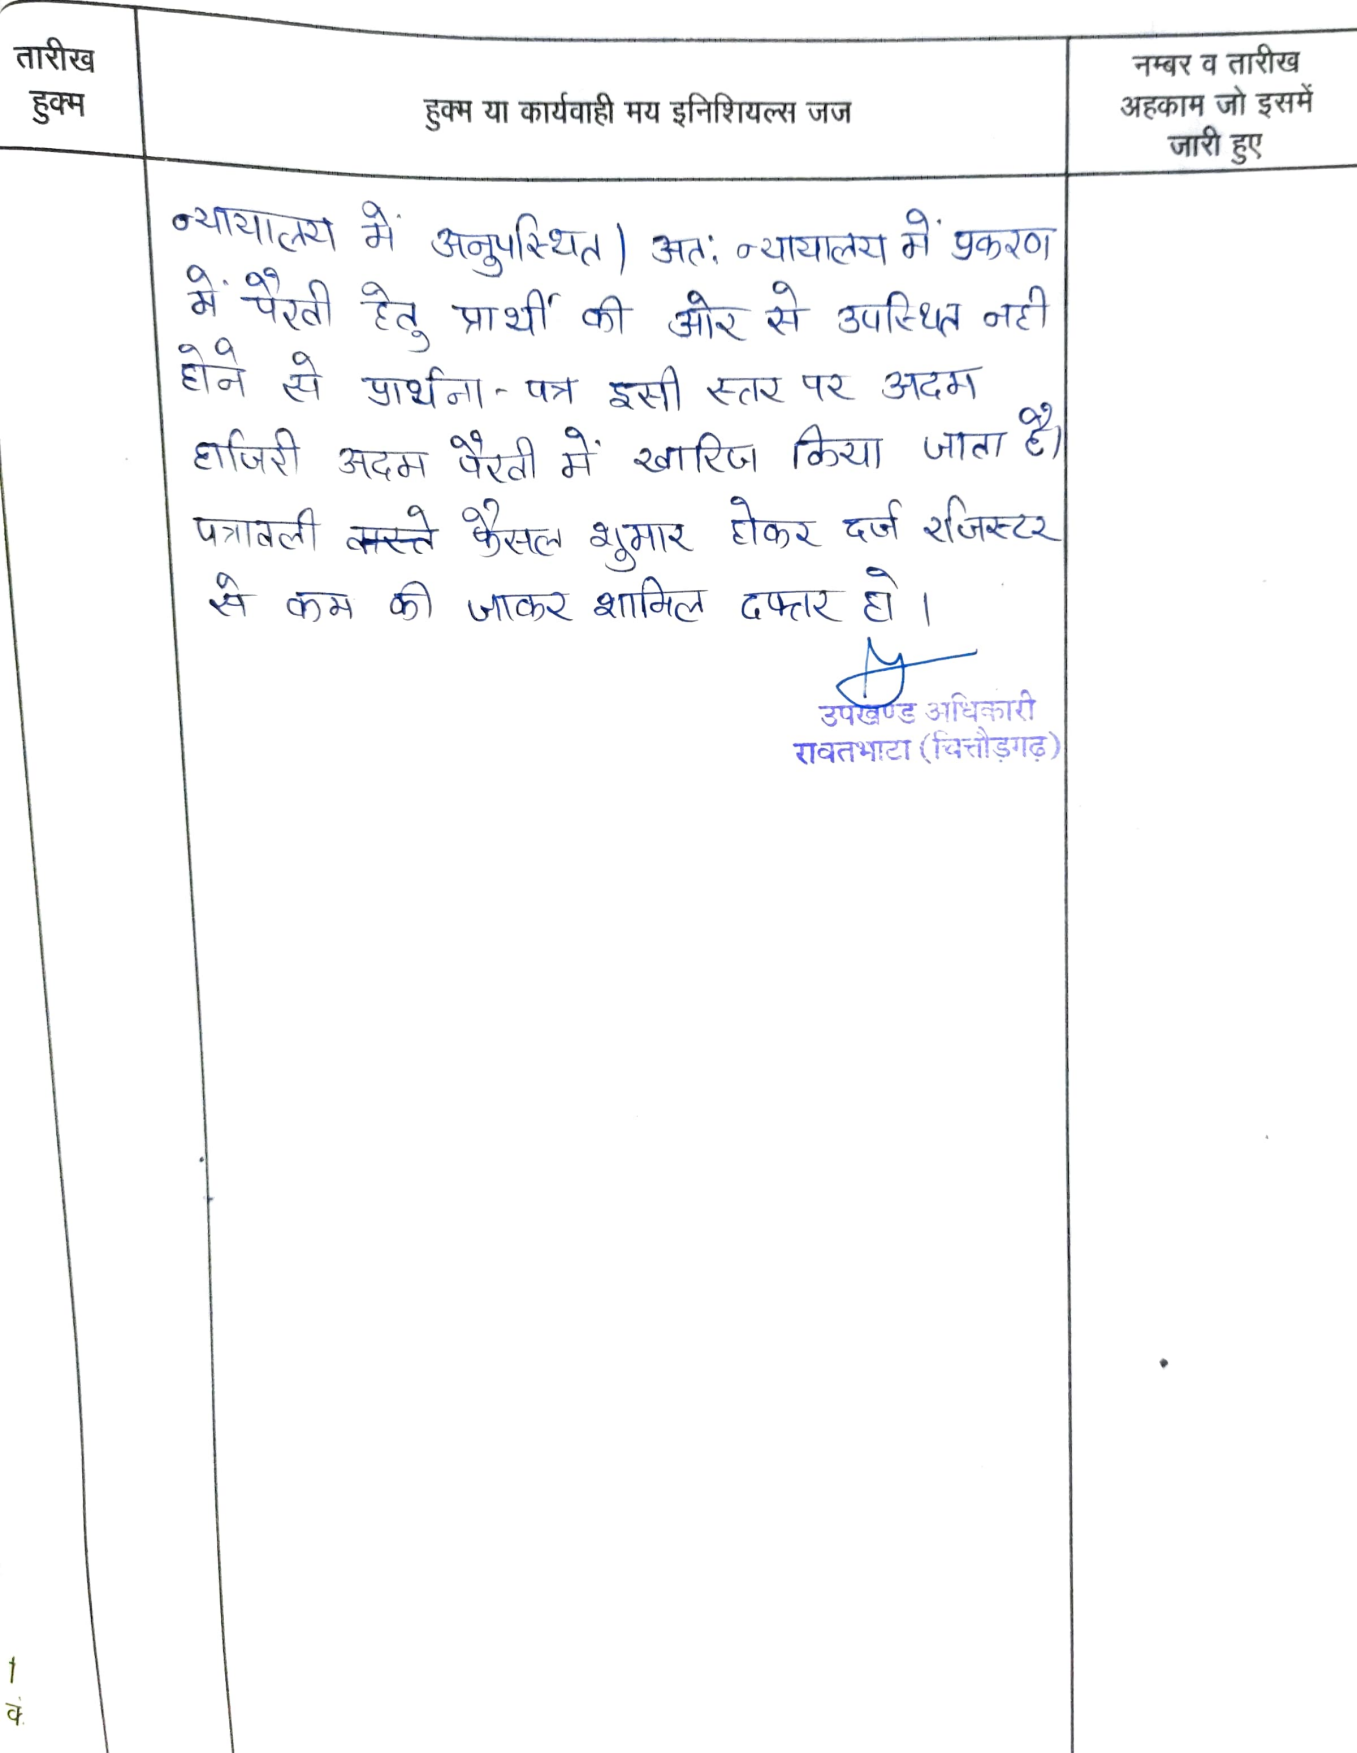 तारीख
हुक्म
हुक्म या कार्यवाही मय इनिशियल्स जज
नम्बर व तारीख
अहकाम जो इसमें
जारी हुए
न्यायालय में अनुपस्थित। अतः न्यायालय में प्रकरण
में पैरवी हेतु प्रार्थी की ओर से उपस्थित नही
होने से प्रार्थना-पत्र इसी स्तर पर अदम
हाजिरी अदम पैरवी में खारिज किया जाता है।
पत्रावली फैसल शुमार होकर दर्ज रजिस्टर
से कम की जाकर शामिल दफ्तर हो।
उपखण्ड अधिकारी
रावतभाटा (चित्तौड़गढ़)